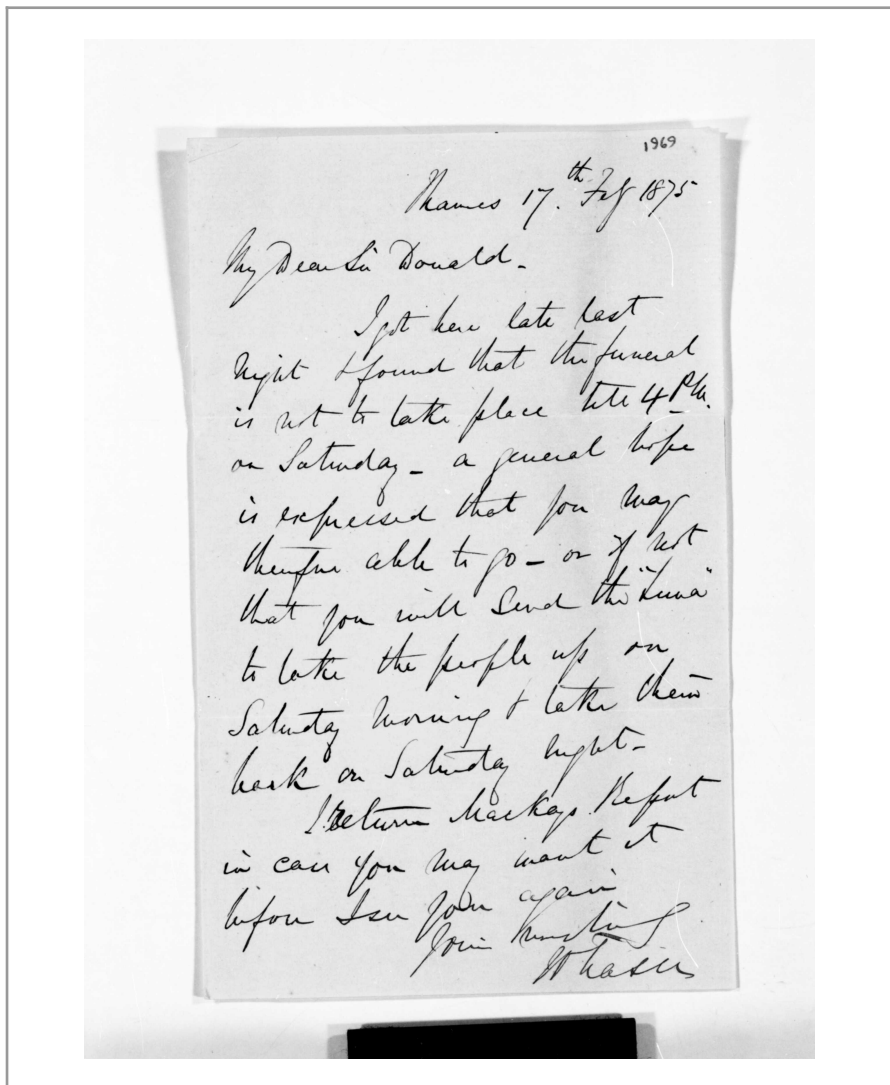 1969
Thames 17.th Feby 1875
My Dear Sir Donald -
I got here late last
night & found that the funeral
is not to take place till 4 P.M.
on Saturday - a general hope
is expressed that you may
therefore able to go - or if not
that you will send the "Luna"
to take the people up on
Saturday morning & take them
back on Saturday night -
I return Mackays Report
in case you may want it
before I see you again
Yours
W Fraser